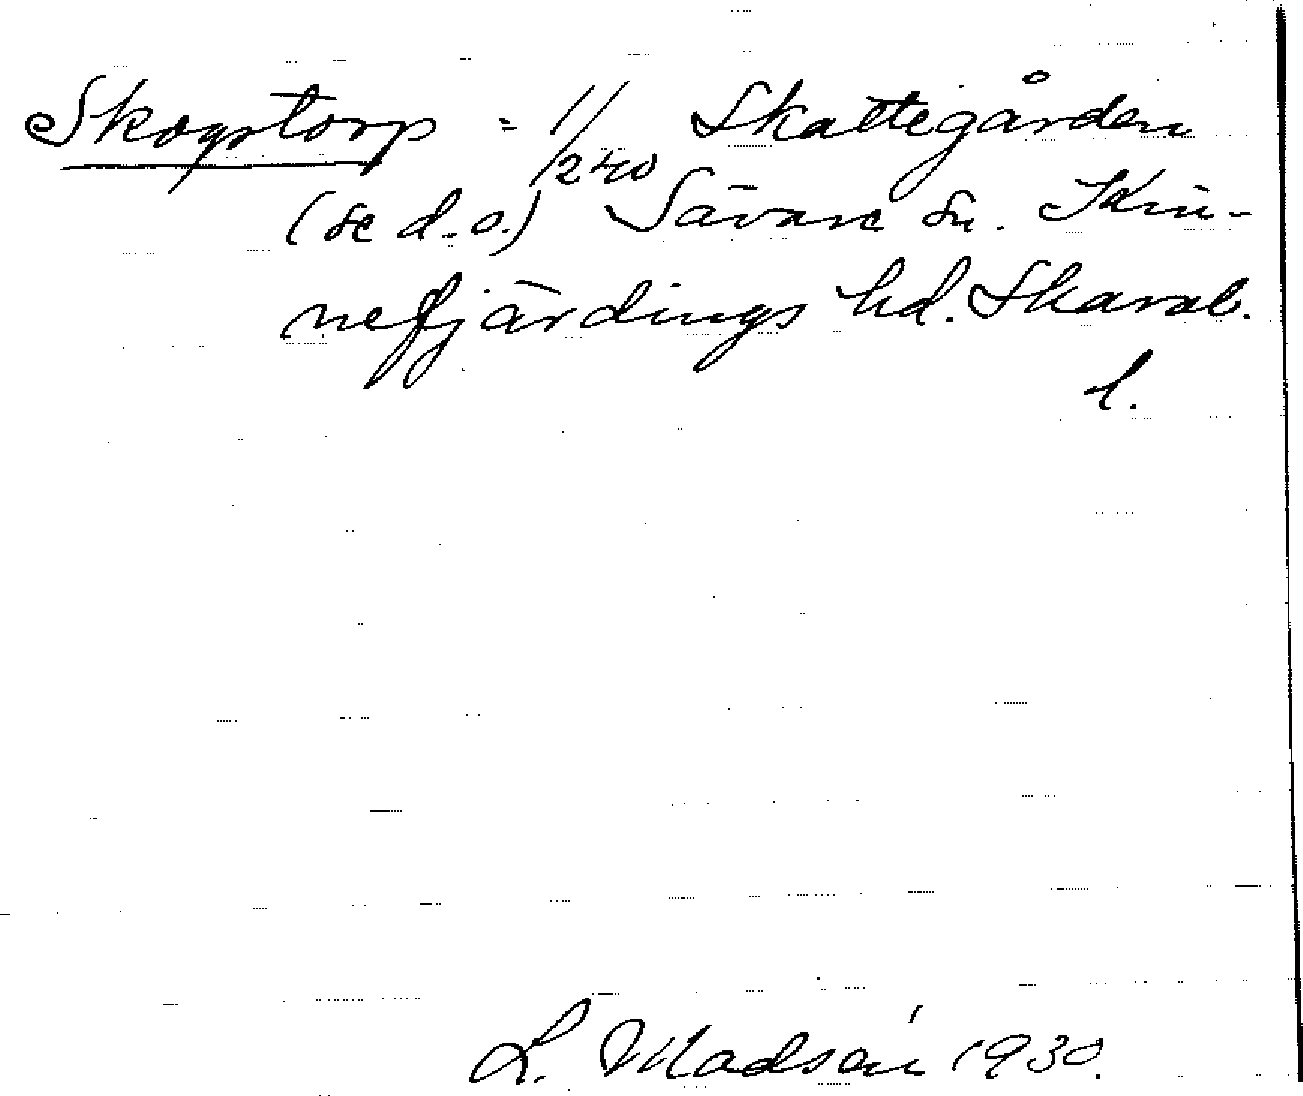 Skogstorp = 1/240 Skattegården
(se d. o.) Sävare sn. Kin-
nefjärdings hd. Skarab.
l.
L. Madsén 1930.